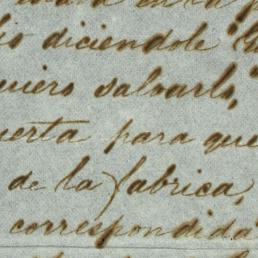 en la
io diciendole
uiero salvarlo,
uerta para que
de la fabrica,
correspondida